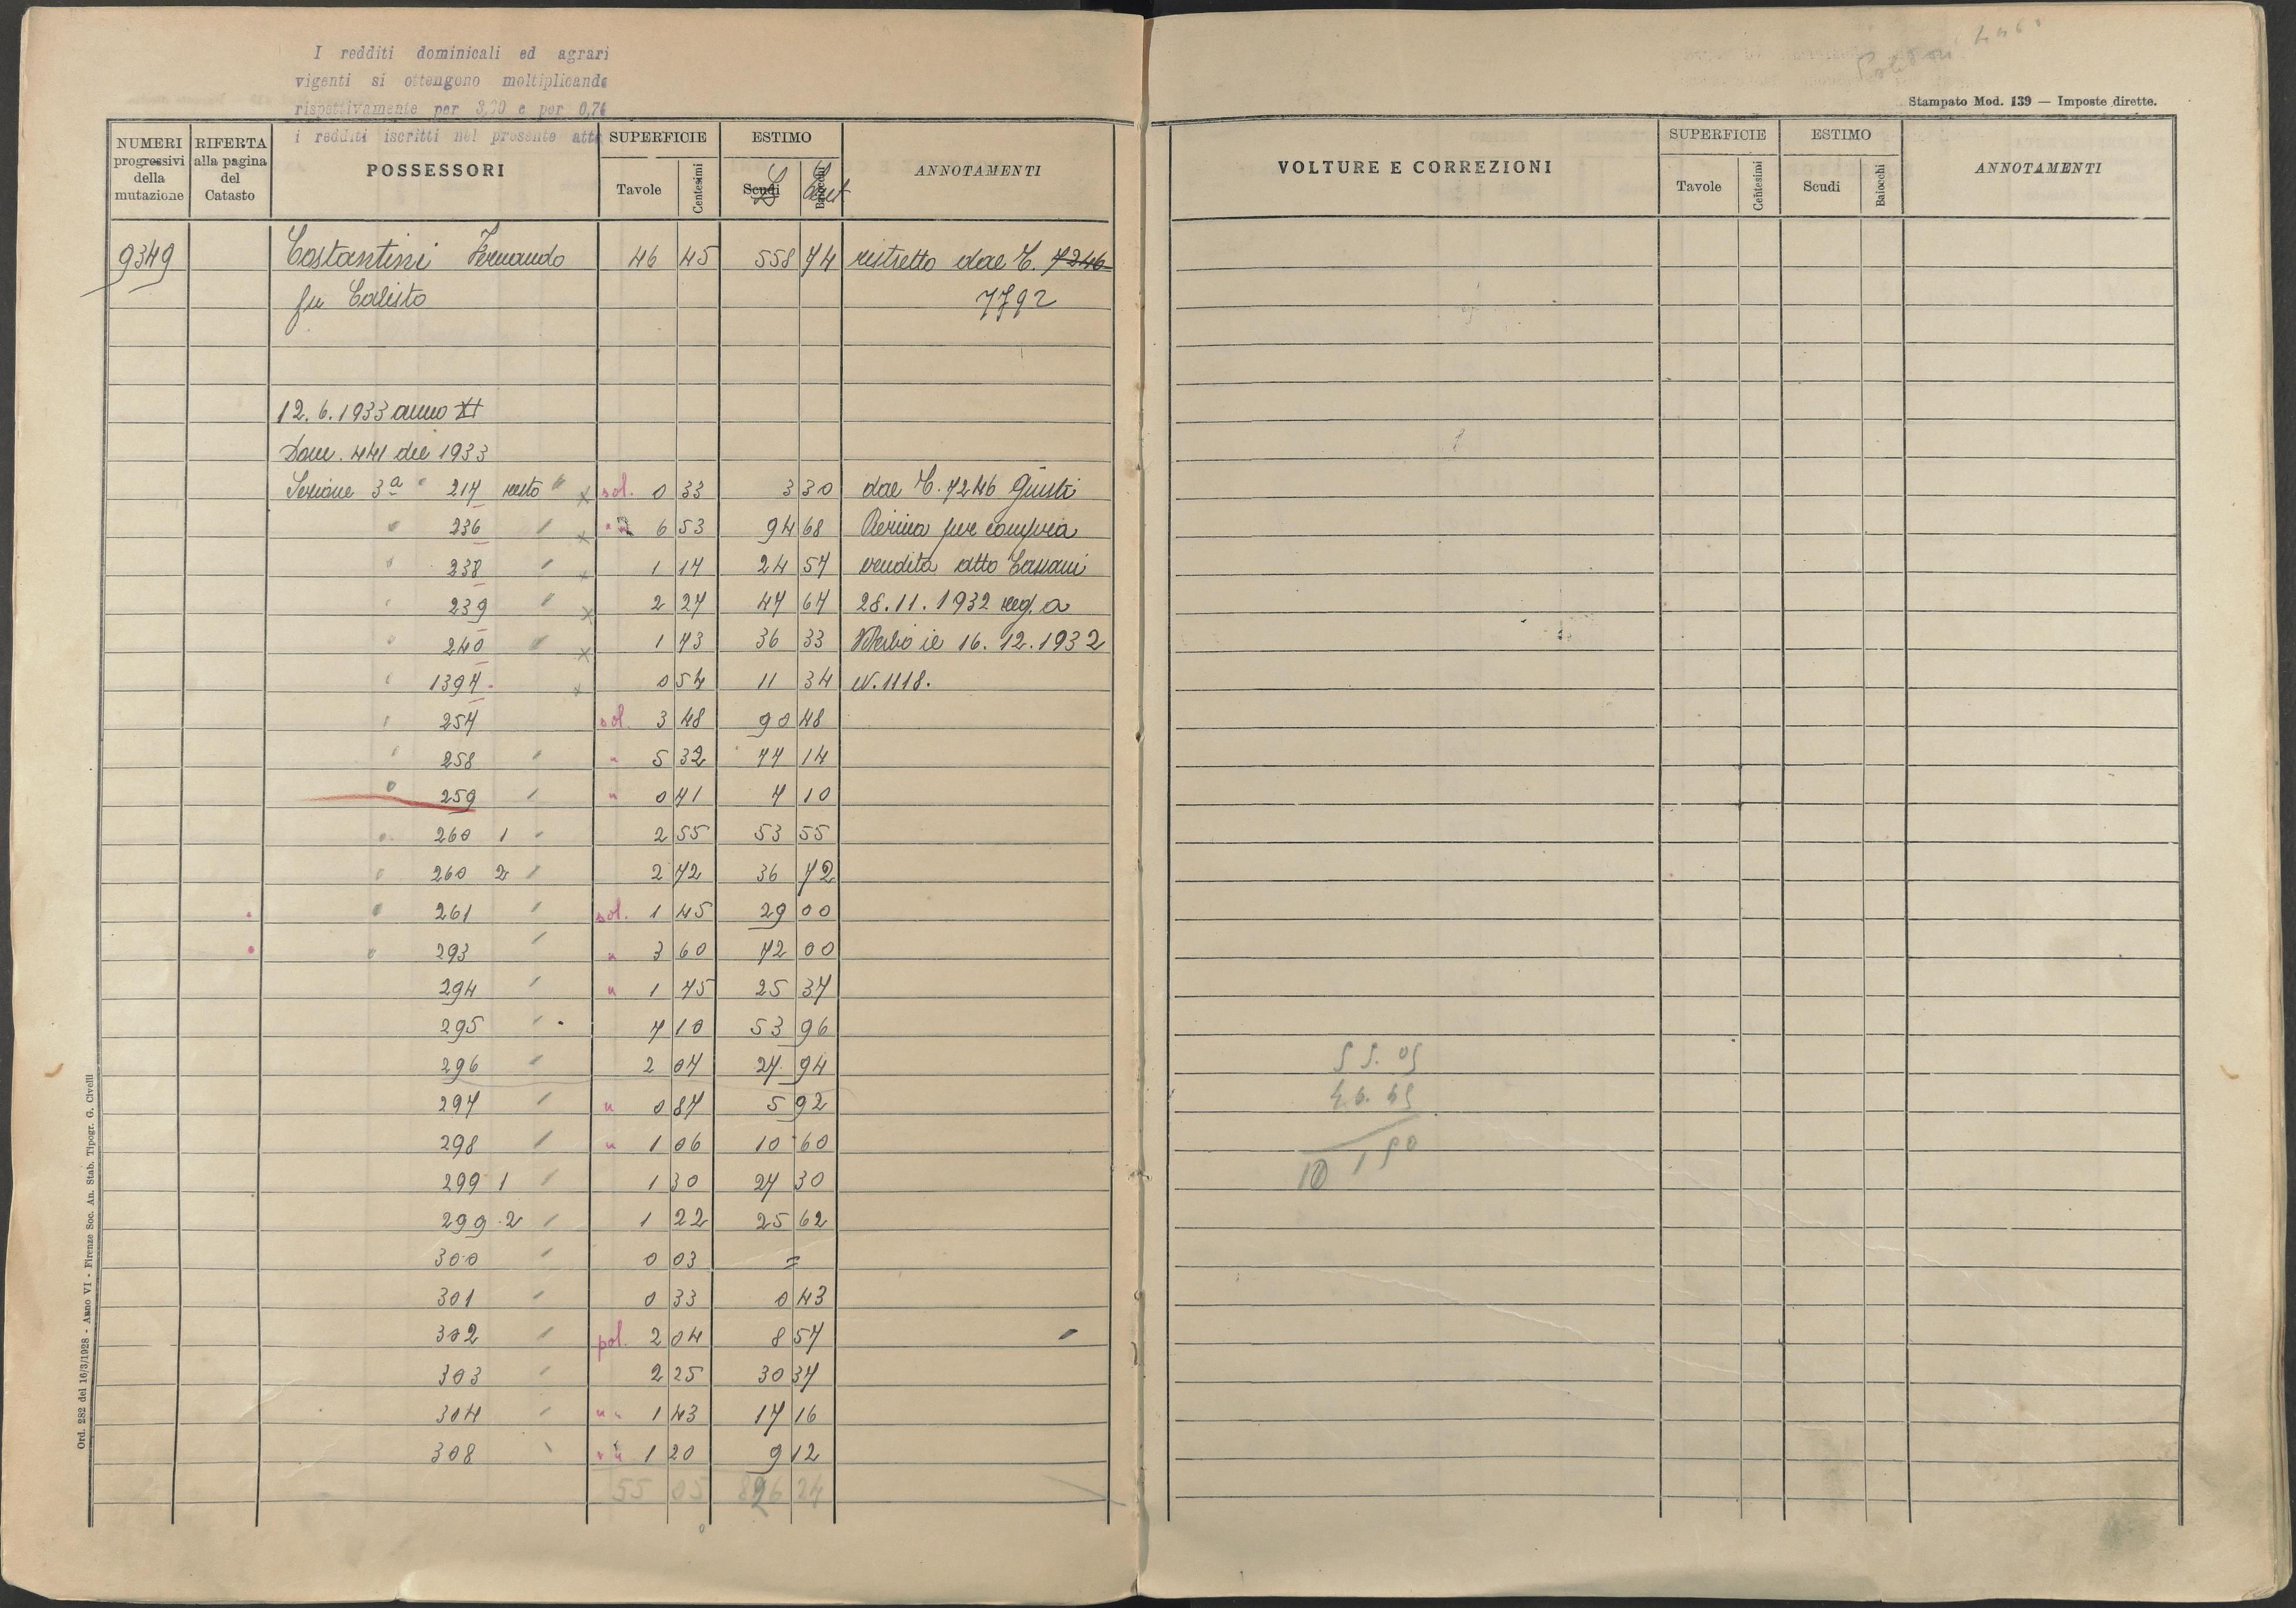 I redditi dominicali ed agrari
vigenti si ottengono moltiplicando
rispettivamente per 3,20 e per 0,74
i redditi iscritti nel presente atto
Stampato Mod. 139 — Imposte dirette.
NUMERI progressivi della mutazione
RIFERTA alla pagina del Catasto
POSSESSORI
SUPERFICIE
Tavole
Centesimi
ESTIMO
Scudi
Baiocchi
ANNOTAMENTI
VOLTURE E CORREZIONI
SUPERFICIE
Tavole
Centesimi
ESTIMO
Scudi
Baiocchi
ANNOTAMENTI
9349 Costantini Fernando 46 45 558 74 ristretto dal C. 7246
fu Calisto 7792
12.6.1933 anno XI
Dom. 441 del 1933
Sezione 3ª " 217 resto " x sol. 0 33 3 30 dal C. 7246 Giusti
" 236 " x 6 53 94 68 Pierina per compra
" 238 " x 1 17 24 57 vendita atto Cassani
" 239 " x 2 27 47 67 28.11.1932 reg. a
" 240 " x 1 73 36 33 Viterbo il 16.12.1932
" 1397 x 0 54 11 34 N. 1118.
" 257 sol. 3 48 90 48
" 258 " " 5 32 77 14
" 259 " " 0 41 4 10
" 260 1 " 2 55 53 55
" 260 2 " 2 72 36 72
" 261 " sol. 1 45 29 00
" 293 " " 3 60 72 00
294 " " 1 75 25 37
295 " 7 10 53 96
296 " 2 07 27 94
297 " " 0 87 5 92
298 " " 1 06 10 60
299 1 " 1 30 27 30
299 2 " 1 22 25 62
300 " 0 03 =
301 " 0 33 0 43
302 " pol. 2 04 8 57
303 " 2 25 30 37
304 " " " 1 43 17 16
308 " " " 1 20 9 12
55 05 896 24
55.05
46.45
101 50
Ord. 282 del 16/3/1928 - Anno VI - Firenze Soc. An. Stab. Tipogr. G. Civelli